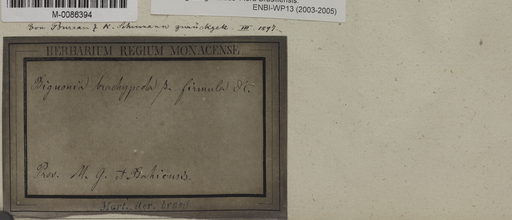 M-0086394
ENBI-WP13 (2003-2005)
Von Bureau & K. Schumann zurückgek. III 1897.
HERBARIUM REGIUM MONACENSE
Bignonia brachypoda β. firmula DC.
Prov. M. G. et Bahiensis.
Mart. iter. brasil